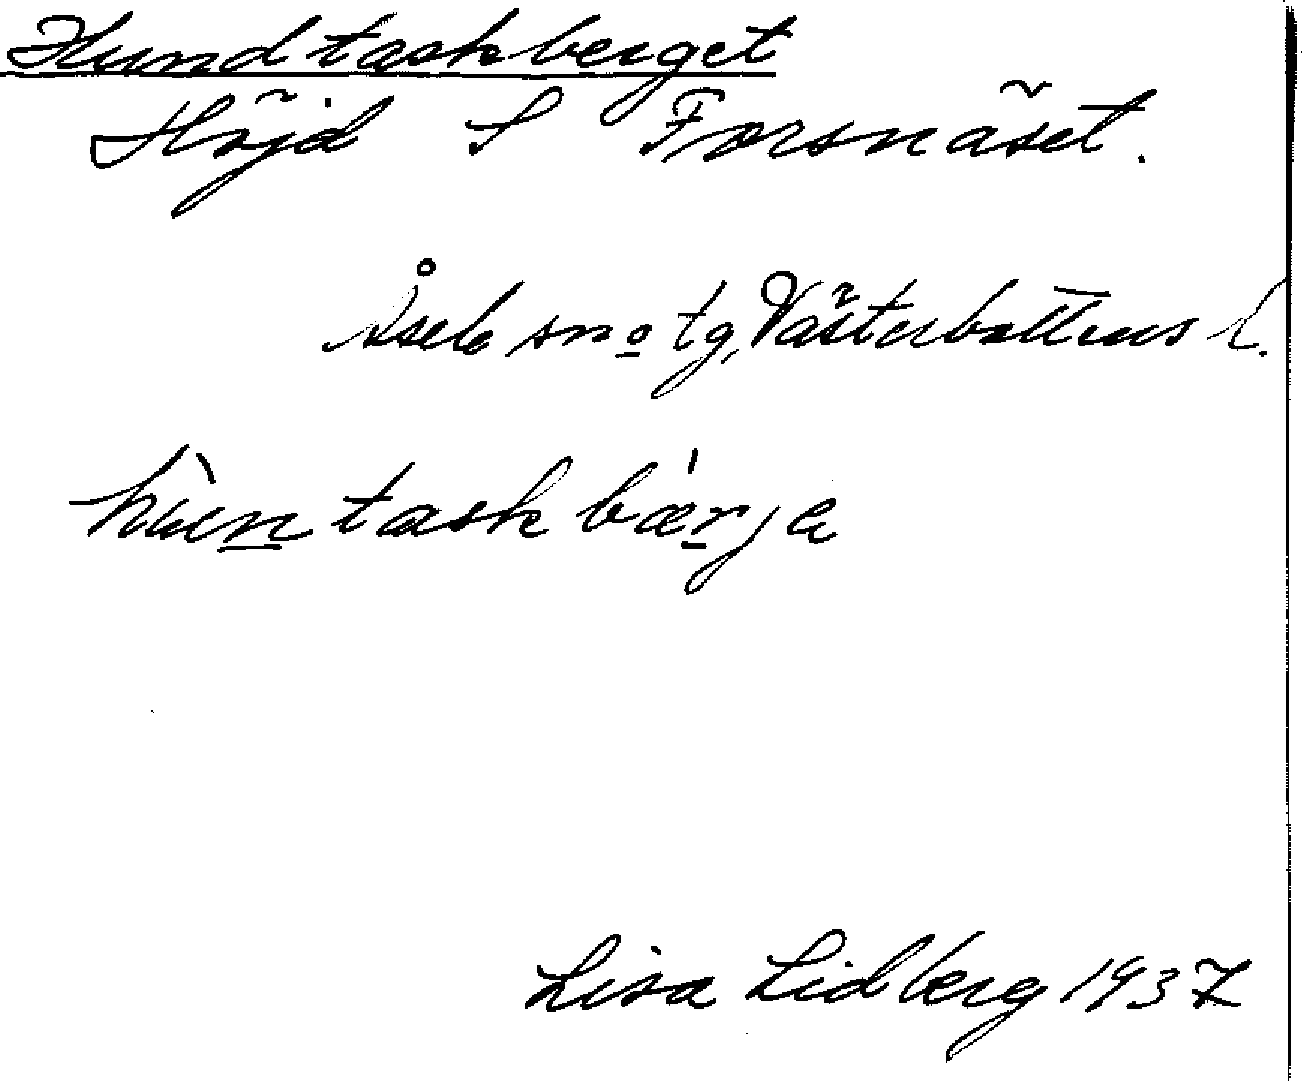 Hundtaskberget
Höjd S Forsnäset.
Åsele sn o tg, Västerbottens l.
hùn̲taskbæ̀r̲ja
Lisa Lidberg 1937